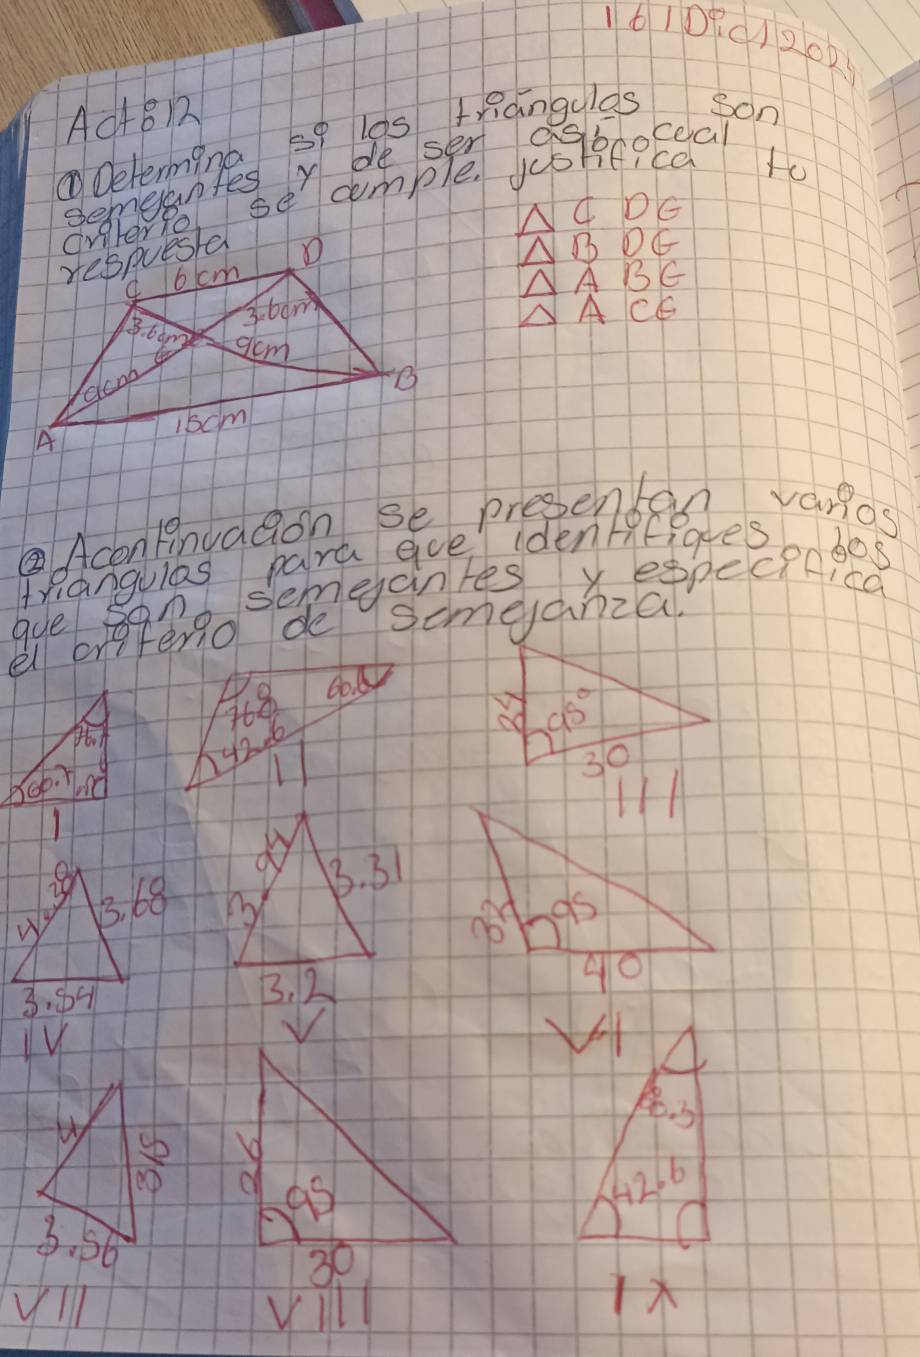 161Dic1202
Act 8 12
① Determina si los triangulos son
semejantes y de ser asi cual
criterio se cumple. justifica tu
respuesta
△ C D E
△ B D E
△ A B E
△ A C E
C 6 cm D
3.6cm 3.6cm
E
9cm 9cm
A 15cm B
② Acontinuación se presentan varios
triangulos para que identifiques los
que son semejantes y especifica
el criterio de semejanza.
60.7
I
42.6
II
95°
30
III
4 3.68
3.54
IV
3 3.31
3.2
V
95
40
VI
4
3.56
VII
26 95
30
VIII
42.6
IX